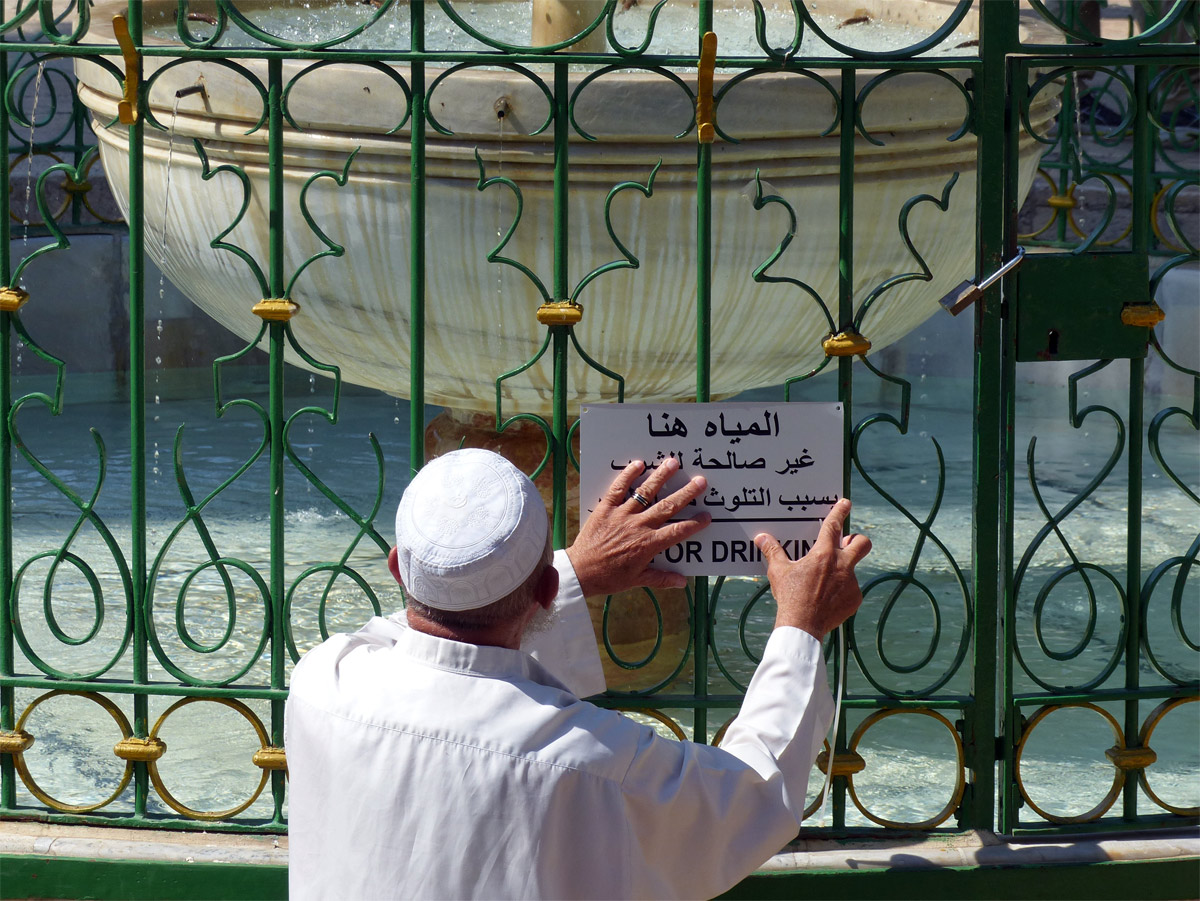 المياه هنا
غير صالحة للشرب
بسبب التلوث
FOR DRINKIN